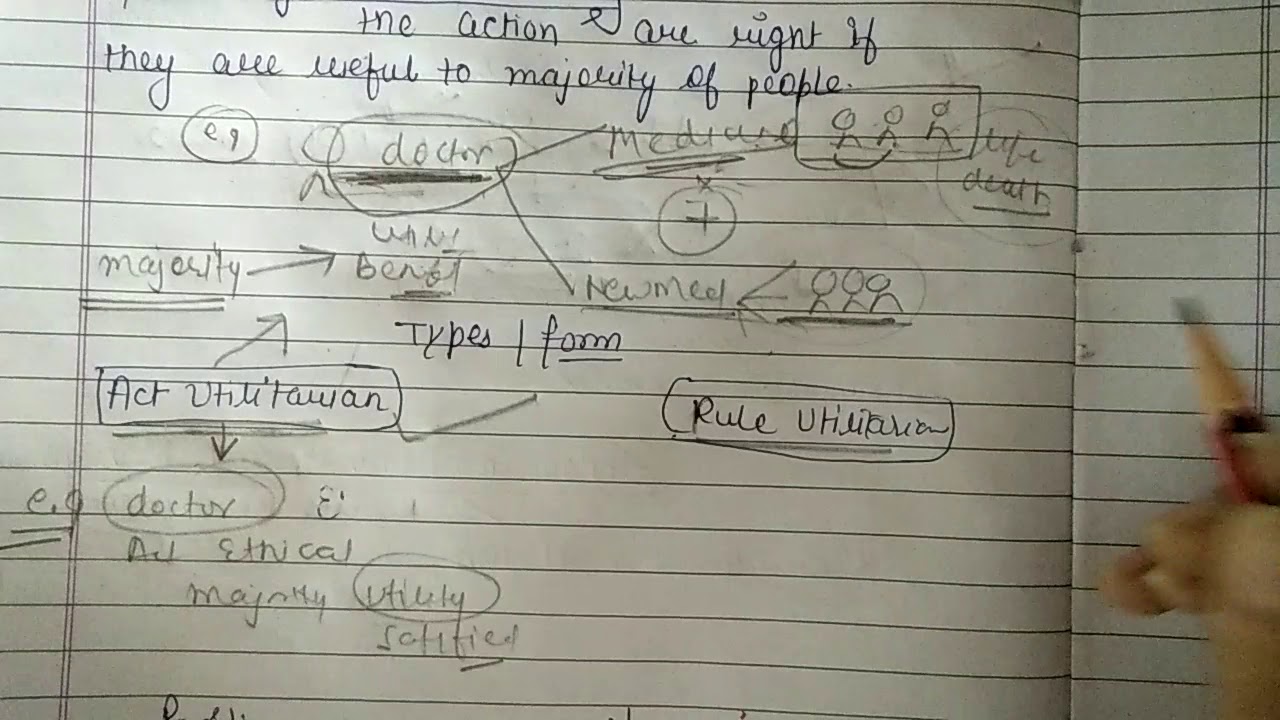 the action are right if
they are useful to majority of people.
e.g doctor Medicine life
death
majority Benefit
New med
Types / form
Act Utilitarian
Rule Utilitarian
e.g doctor
Act Ethical
majority utility
satified